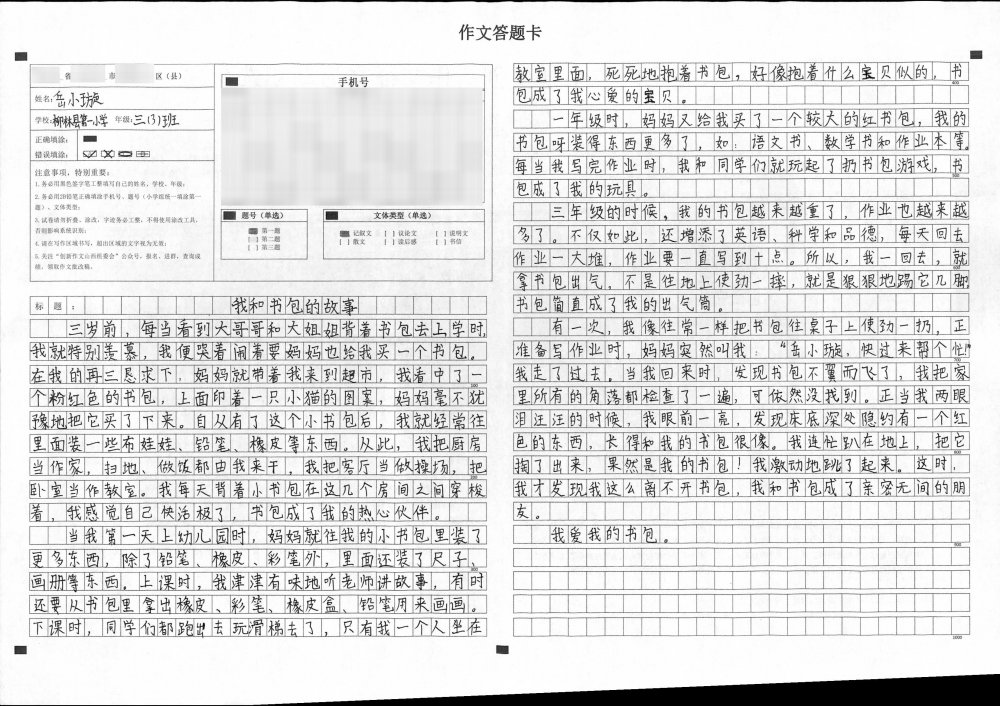 作文答题卡
省 市 区（县）
姓名：岳小璇
学校：柳林县第一小学 年级：三(3)班
正确填涂：
错误填涂：
注意事项，特别重要：
1.务必用黑色签字笔工整填写自己的姓名、学校、年级；
2.务必用2B铅笔正确填涂手机号、题号（小学组统一填涂第一题）、文体类型；
3.试卷请勿折叠、涂改，字迹务必工整，不得使用涂改工具，否则影响系统识别；
4.请在写作区域书写，超出区域的文字视为无效；
5.关注“创新作文山西组委会”公众号，报名、进群、查询成绩、领取作文批改稿。
手机号
题号（单选）
第一题
[ ] 第二题
[ ] 第三题
文体类型（单选）
记叙文 [ ] 议论文 [ ] 说明文
[ ] 散文 [ ] 读后感 [ ] 书信
标 题： 我和书包的故事
三岁前，每当看到大哥哥和大姐姐背着书包去上学时，
我就特别羡慕，我便哭着闹着要妈妈也给我买一个书包。
在我的再三恳求下，妈妈就带着我来到超市，我看中了一
个粉红色的书包，上面印着一只小猫的图案，妈妈毫不犹
豫地把它买了下来。自从有了这个小书包后，我就经常往
里面装一些布娃娃、铅笔、橡皮等东西。从此，我把厨房
当作家，扫地、做饭都由我来干，我把客厅当做操场，把
卧室当作教室。我每天背着小书包在这几个房间之间穿梭
着，我感觉自己快活极了，书包成了我的热心伙伴。
当我第一天上幼儿园时，妈妈就往我的小书包里装了
更多东西，除了铅笔、橡皮、彩笔外，里面还装了尺子、
画册等东西。上课时，我津津有味地听老师讲故事，有时
还要从书包里拿出橡皮、彩笔、橡皮盒、铅笔用来画画。
下课时，同学们都跑出去玩滑梯去了，只有我一个人坐在
教室里面，死死地抱着书包，好像抱着什么宝贝似的，书
包成了我心爱的宝贝。
一年级时，妈妈又给我买了一个较大的红书包，我的
书包呀装得东西更多了，如：语文书、数学书和作业本等。
每当我写完作业时，我和同学们就玩起了扔书包游戏，书
包成了我的玩具。
三年级的时候，我的书包越来越重了，作业也越来越
多了。不仅如此，还增添了英语、科学和品德，每天回去
作业一大堆，作业要一直写到十点。所以，我一回去，就
拿书包出气，不是往地上使劲一摔，就是狠狠地踢它几脚
书包简直成了我的出气筒。
有一次，我像往常一样把书包往桌子上使劲一扔，正
准备写作业时，妈妈突然叫我：“岳小璇，快过来帮个忙！”
我走了过去。当我回来时，发现书包不翼而飞了，我把家
里所有的角落都检查了一遍，可依然没找到。正当我两眼
泪汪汪的时候，我眼前一亮，发现床底深处隐约有一个红
色的东西，长得和我的书包很像。我连忙趴在地上，把它
掏了出来，果然是我的书包！我激动地跳了起来。这时，
我才发现我这么离不开书包，我和书包成了亲密无间的朋
友。
我爱我的书包。